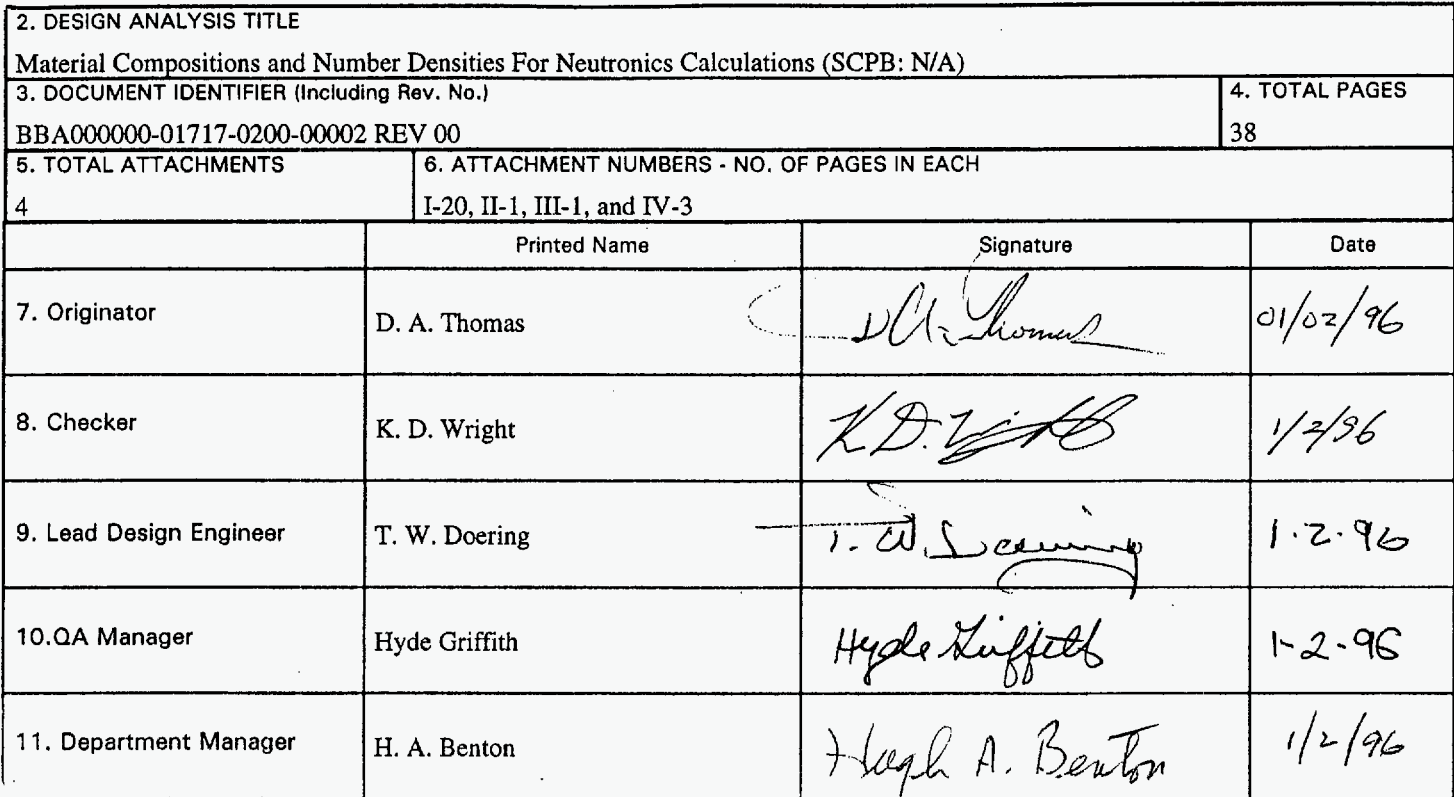 2. DESIGN ANALYSIS TITLE
Material Compositions and Number Densities For Neutronics Calculations (SCPB: N/A)
3. DOCUMENT IDENTIFIER (Including Rev. No.)
4. TOTAL PAGES
BBA000000-01717-0200-00002 REV 00
38
5. TOTAL ATTACHMENTS
6. ATTACHMENT NUMBERS - NO. OF PAGES IN EACH
4
I-20, II-1, III-1, and IV-3
Printed Name Signature Date
7. Originator D. A. Thomas DA Thomas 01/02/96
8. Checker K. D. Wright K.D. Wright 1/2/96
9. Lead Design Engineer T. W. Doering T. W. Doering 1·2·96
10.QA Manager Hyde Griffith Hyde Griffith 1-2-96
11. Department Manager H. A. Benton Hugh A. Benton 1/2/96